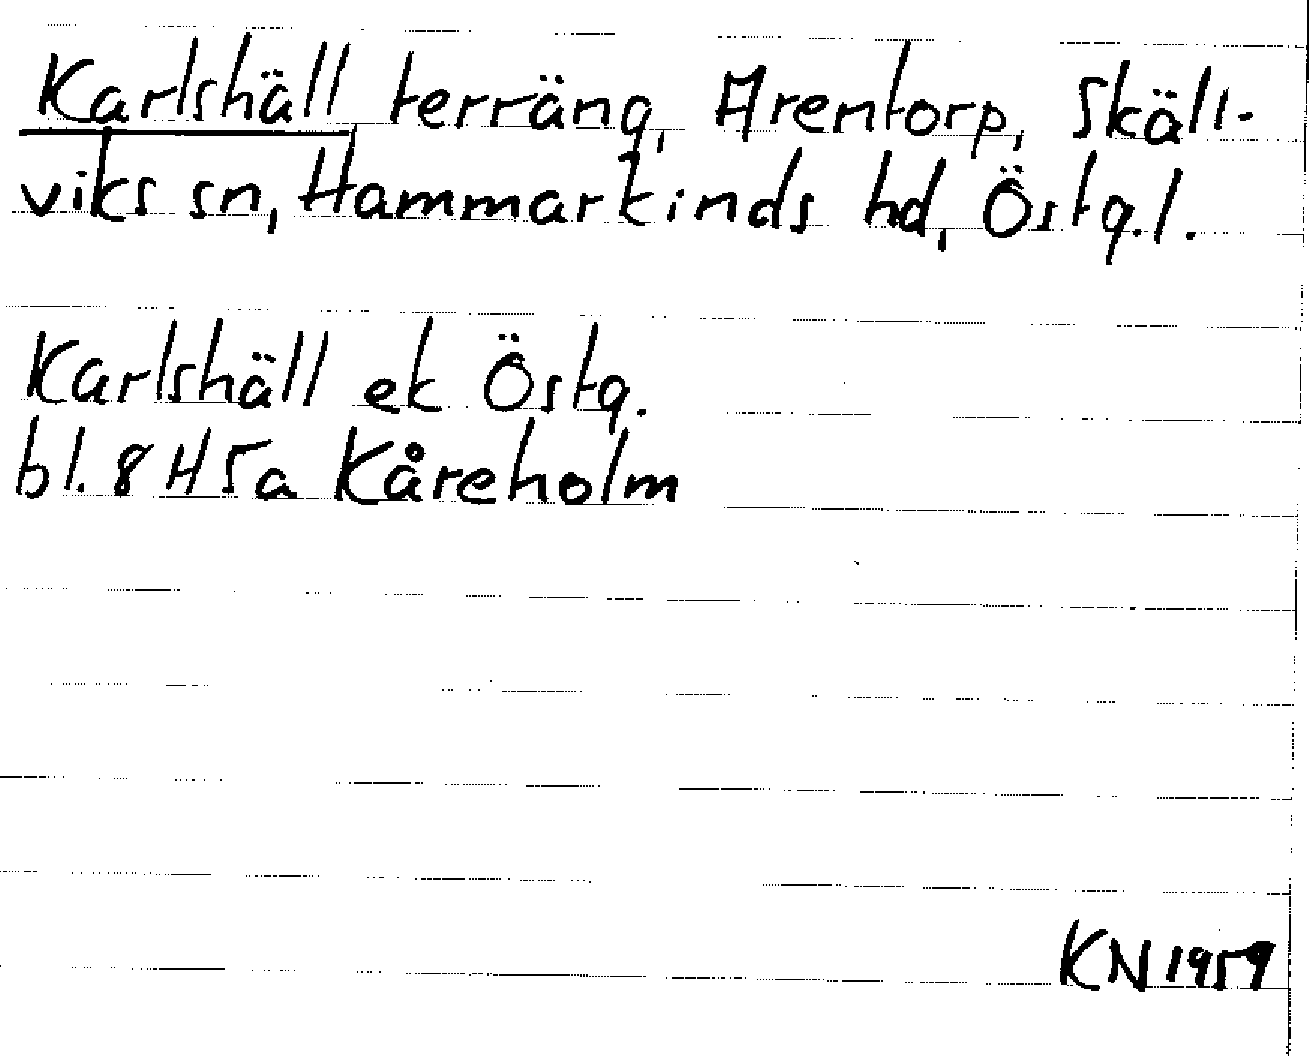 Karlshäll, terräng, Arentorp, Skäll-
viks sn, Hammarkinds hd, Östg.l.
Karlshäll ek Östg.
bl. 8H5a Kåreholm
KN 1959